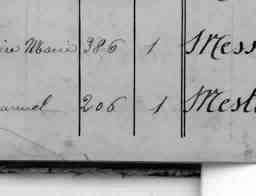 Marie 386 1 Mess
206 1 Mest